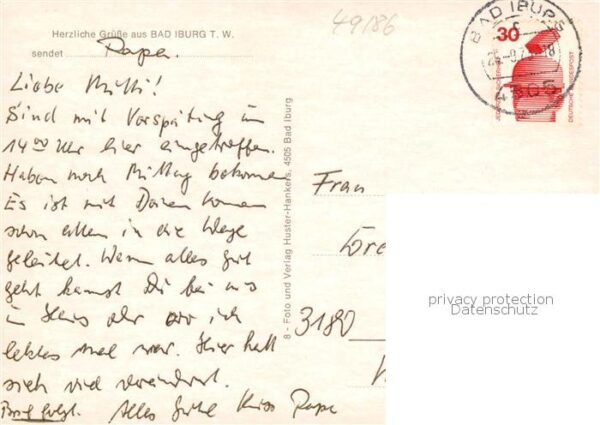 49/86
Herzliche Grüße aus BAD IBURG T. W.
sendet Papa.
Liebe Mutti!
Sind mit Verspätung um
14 00 Uhr hier eingetroffen.
Haben noch Mittag bekommen
Es ist mit
schon alles in die Wege
geleitet. Wenn alles gut
geht kannst Du bei uns
im Haus oder wo ich
letztes mal war. Hier hat
sich viel verändert.
Brief folgt. Alles Gute Kuss Papa
8 - Foto und Verlag Huster-Hankers, 4505 Bad Iburg
Frau
3180
BAD IBURG
4505
30
DEUTSCHE BUNDESPOST
privacy protection
Datenschutz